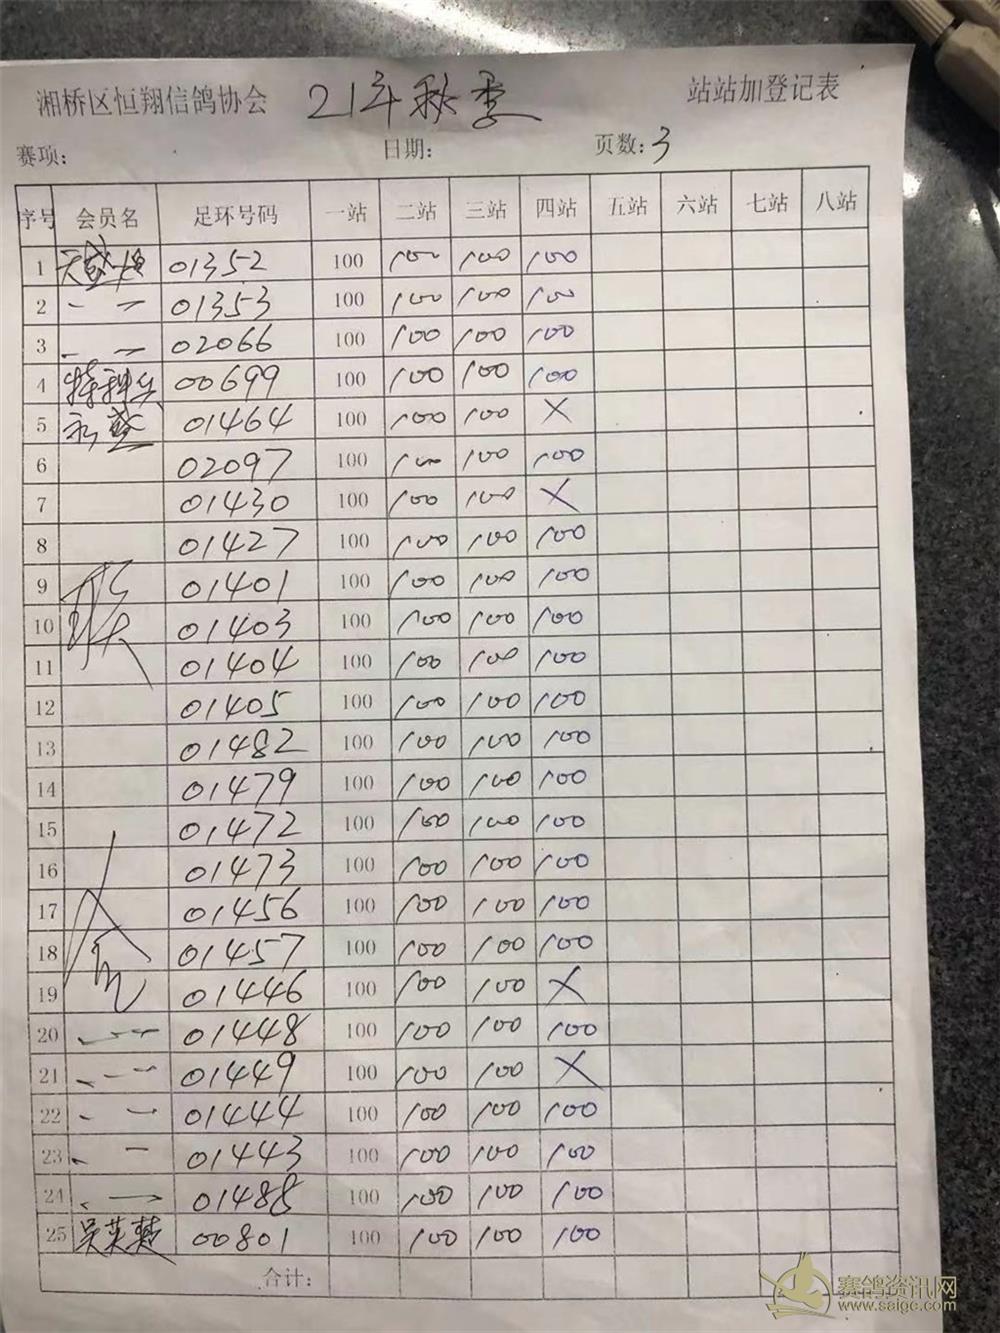 湘桥区恒翔信鸽协会 21年秋季 站站加登记表
赛项: 日期: 页数: 3
序号 会员名 足环号码 一站 二站 三站 四站 五站 六站 七站 八站
1 天盛 01352 100 100 100 100
2 一 一 01353 100 100 100 100
3 一 一 02066 100 100 100 100
4 特种兵 00699 100 100 100 100
5 永盛 01464 100 100 100 X
6 02097 100 100 100 100
7 01430 100 100 100 X
8 01427 100 100 100 100
9 01401 100 100 100 100
10 01403 100 100 100 100
11 01404 100 100 100 100
12 01405 100 100 100 100
13 01482 100 100 100 100
14 01479 100 100 100 100
15 01472 100 100 100 100
16 01473 100 100 100 100
17 01456 100 100 100 100
18 01457 100 100 100 100
19 01446 100 100 100 X
20 一 一 01448 100 100 100 100
21 一 一 01449 100 100 100 X
22 一 一 01444 100 100 100 100
23 一 一 01443 100 100 100 100
24 一 一 01488 100 100 100 100
25 吴英楚 00801 100 100 100 100
合计:
赛鸽资讯网
www.saigc.com